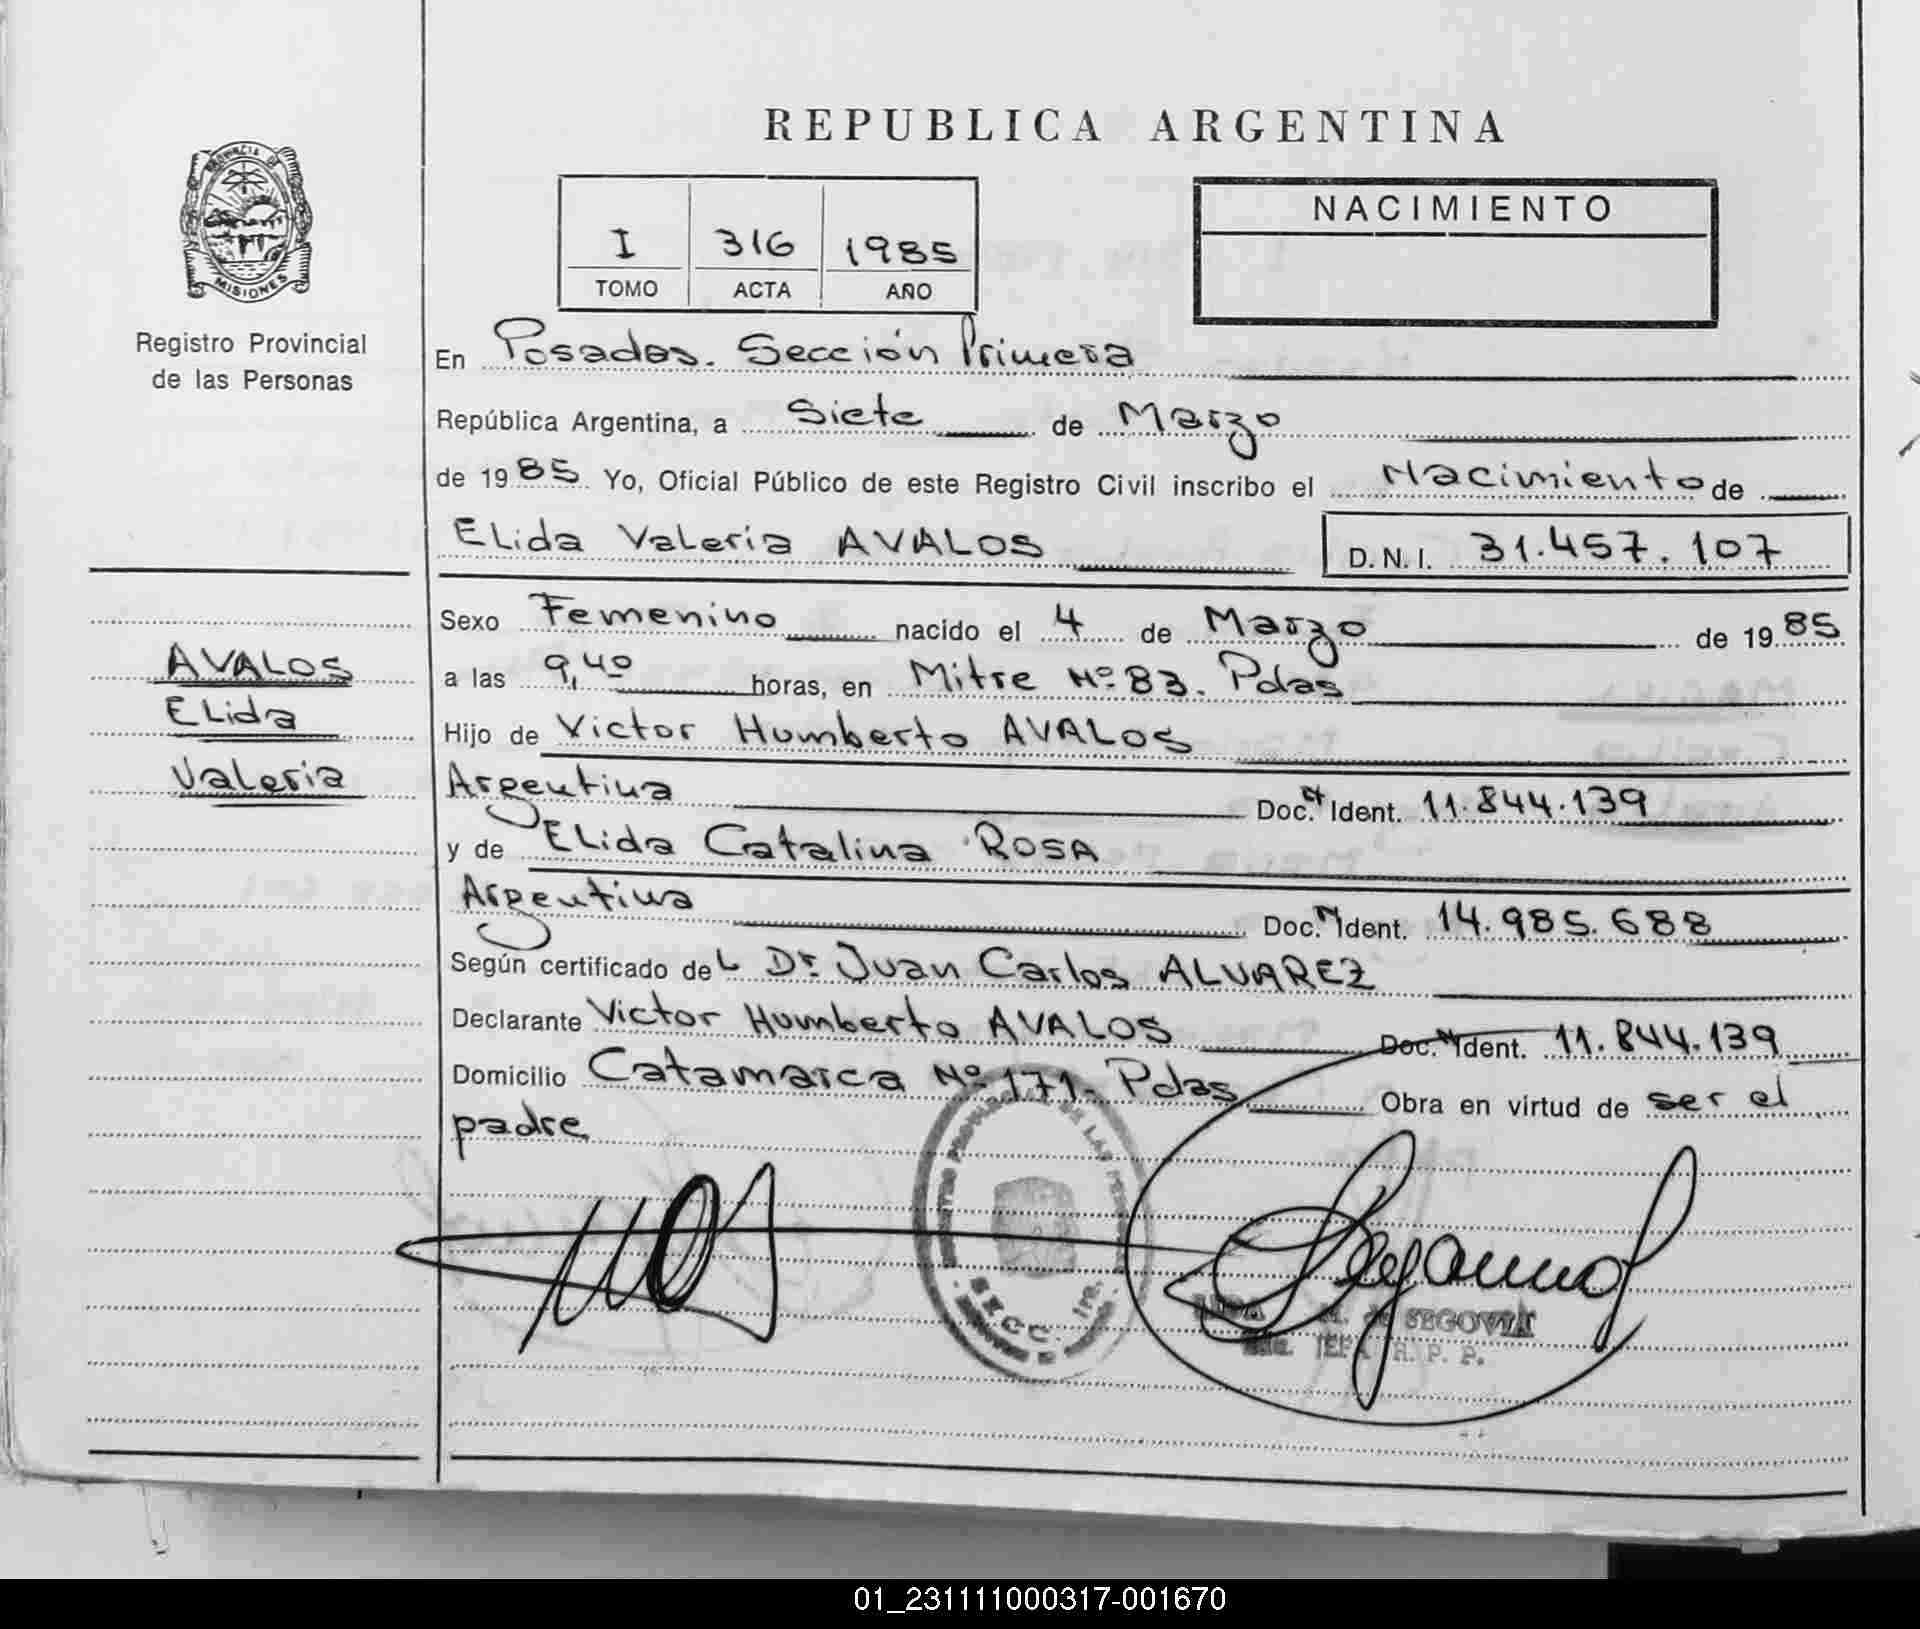 REPUBLICA ARGENTINA
PROVINCIA DE
MISIONES
Registro Provincial
de las Personas
I 316 1985
TOMO ACTA AÑO
NACIMIENTO
En Posadas. Sección Primera
República Argentina, a Siete de Marzo
de 1985 Yo, Oficial Público de este Registro Civil inscribo el Nacimiento de
ELida Valeria AVALOS D.N.I. 31.457.107
AVALOS
ELida
Valeria
Sexo Femenino nacido el 4 de Marzo de 1985
a las 9,40 horas, en Mitre Nº 83. Pdas
Hijo de Victor Humberto AVALOS
Argentina Doc. Ident. 11.844.139
y de ELida Catalina ROSA
Argentina Doc. Ident. 14.985.688
Según certificado deL Dr Juan Carlos ALVAREZ
Declarante Victor Humberto AVALOS Doc. Ident. 11.844.139
Domicilio Catamarca Nº 171- Pdas Obra en virtud de ser el
padre
PROVINCIAL DE LAS
SECC. 1ra.
M. de SEGOVIA
JEFA R. P. P.
01_231111000317-001670